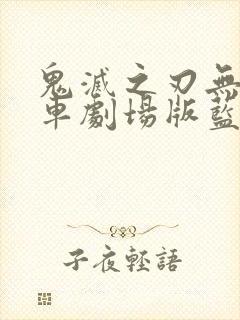 鬼滅之刃無
車劇場版藍
子夜輕語